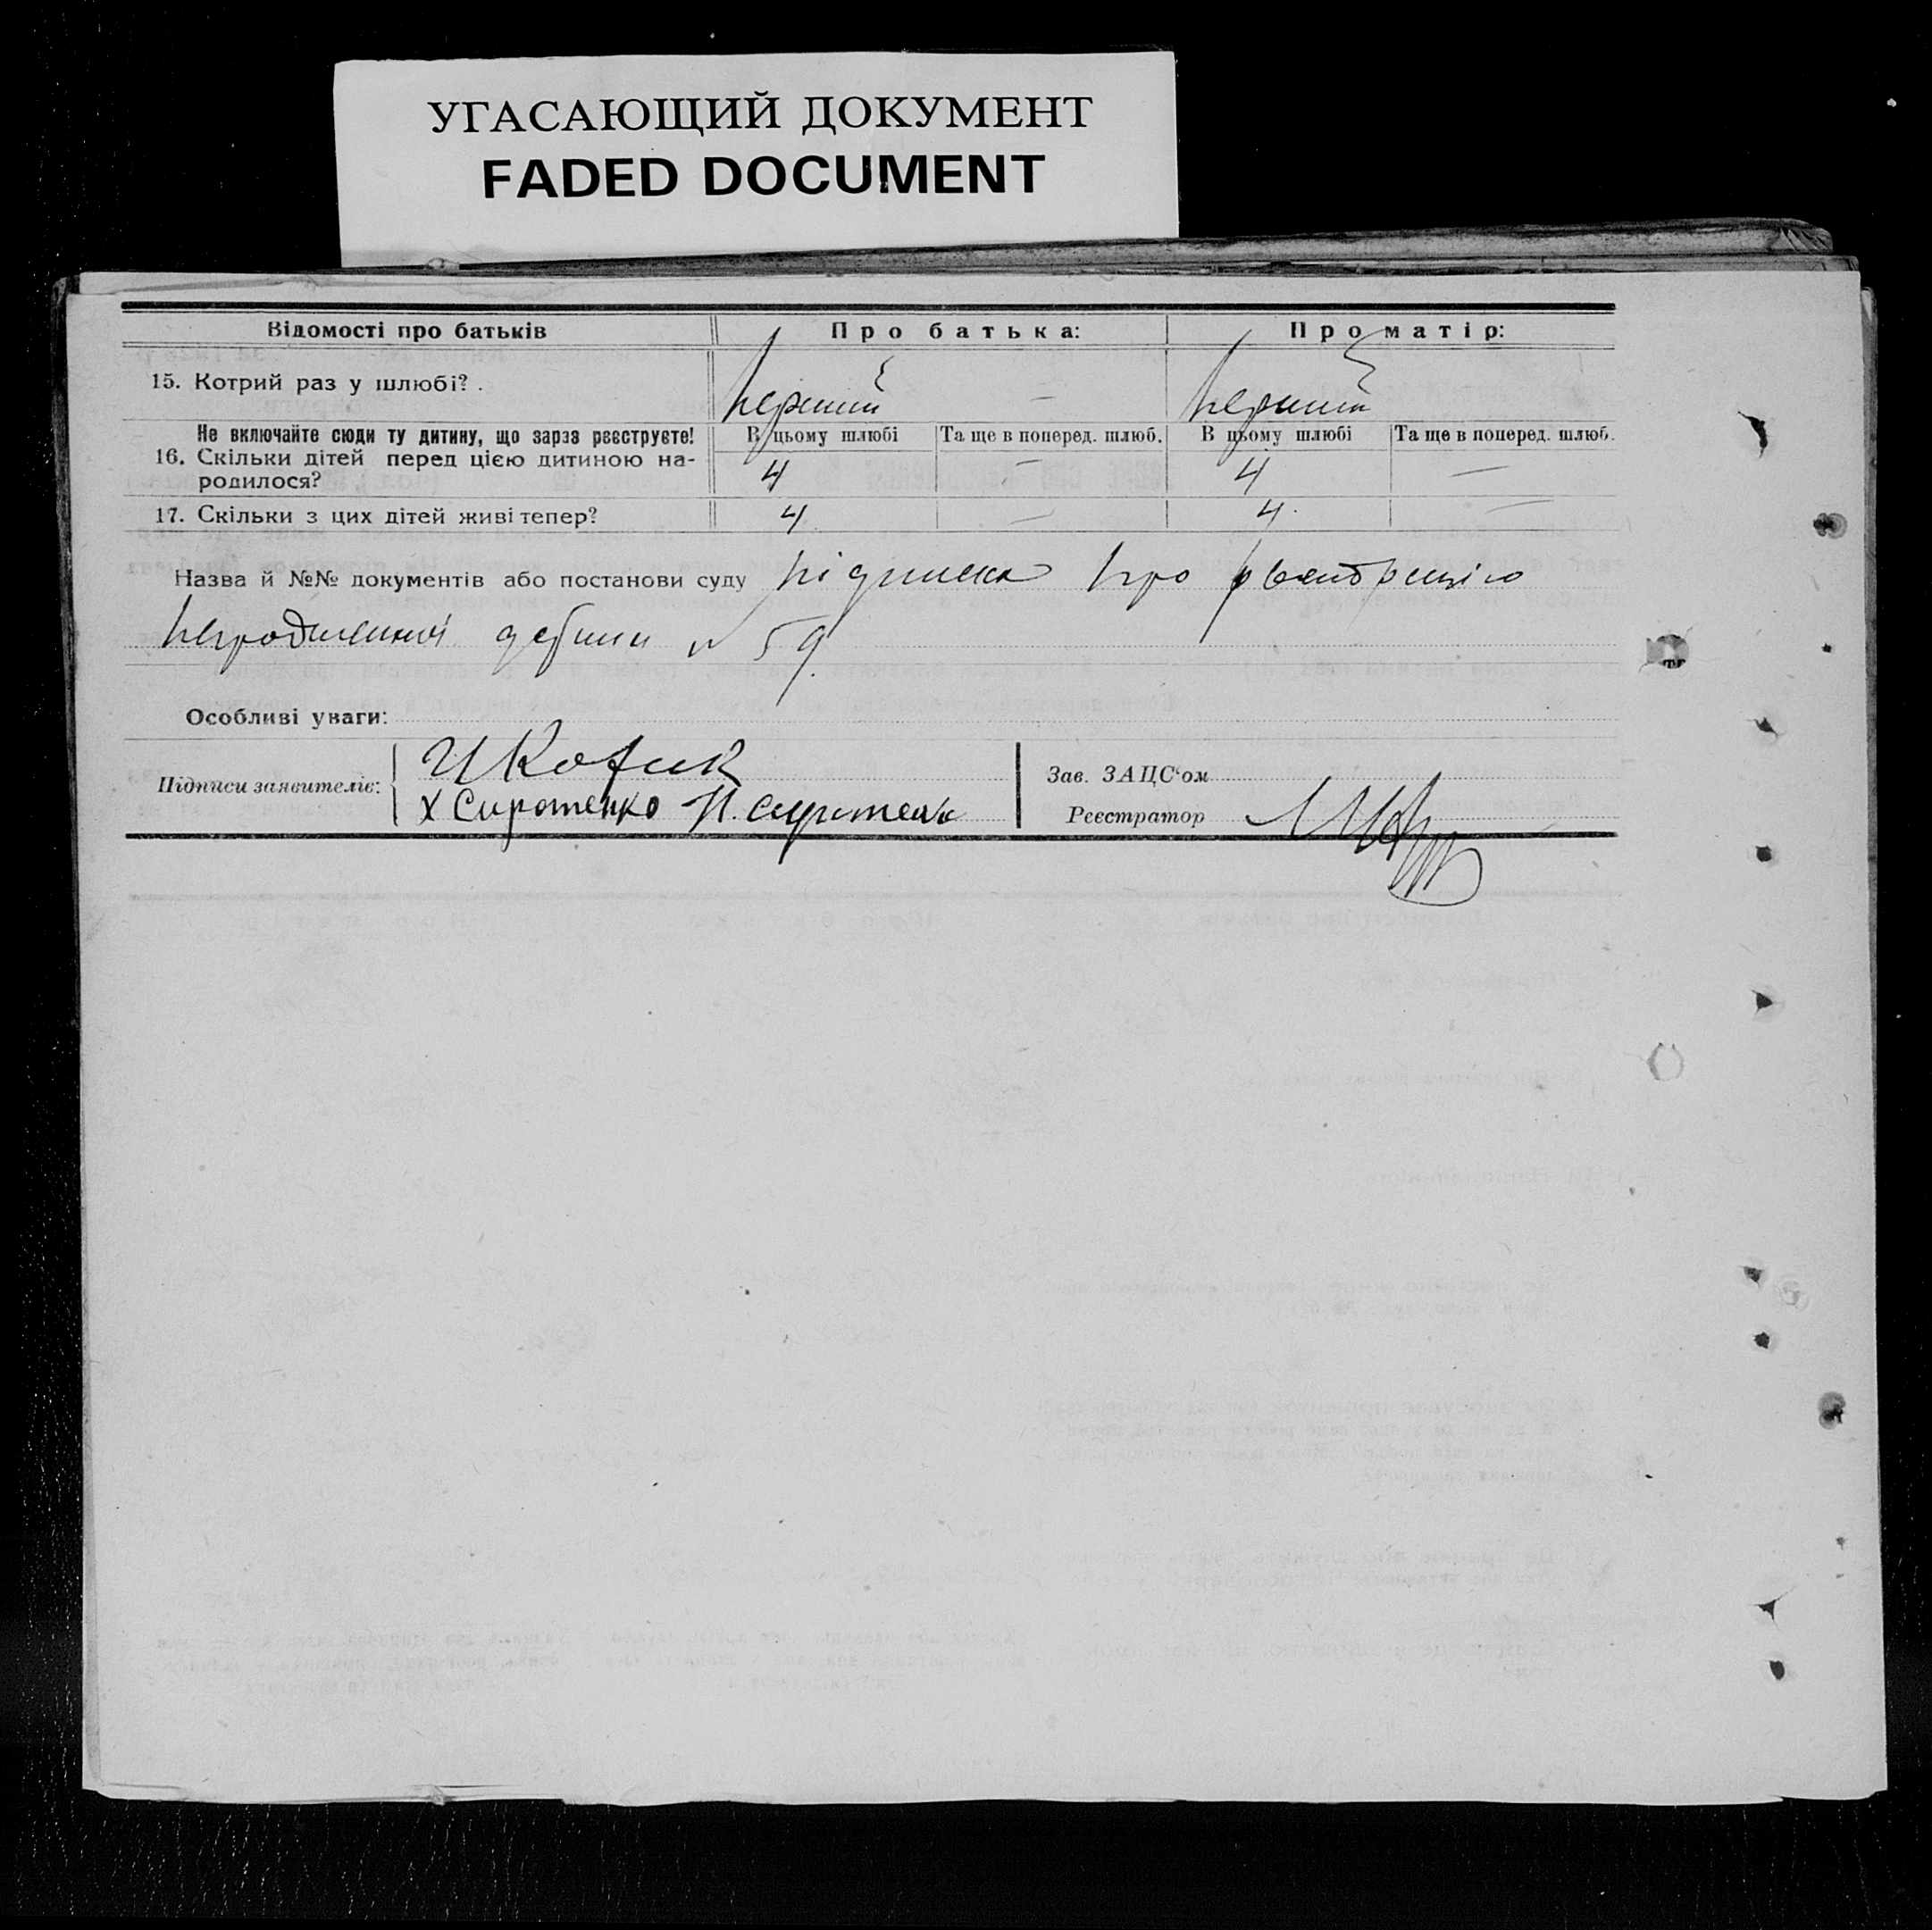 УГАСАЮЩИЙ ДОКУМЕНТ
FADED DOCUMENT
Відомості про батьків Про батька: Про матір:
15. Котрий раз у шлюбі? . перший — перший —
Не включайте сюди ту дитину, що зараз реєструєте! В цьому шлюбі Та ще в поперед. шлюб. В цьому шлюбі Та ще в поперед. шлюб.
16. Скільки дітей перед цією дитиною на-
родилося? 4 — 4 —
17. Скільки з цих дітей живі тепер? 4 — 4 —
Назва й №№ документів або постанови суду підписка про
дитини № 59.
Особливі уваги:
Підписи заявителів: И Котик
Х Сиротенко Н. Сиротенк
Зав. ЗАЦС'ом
Реєстратор